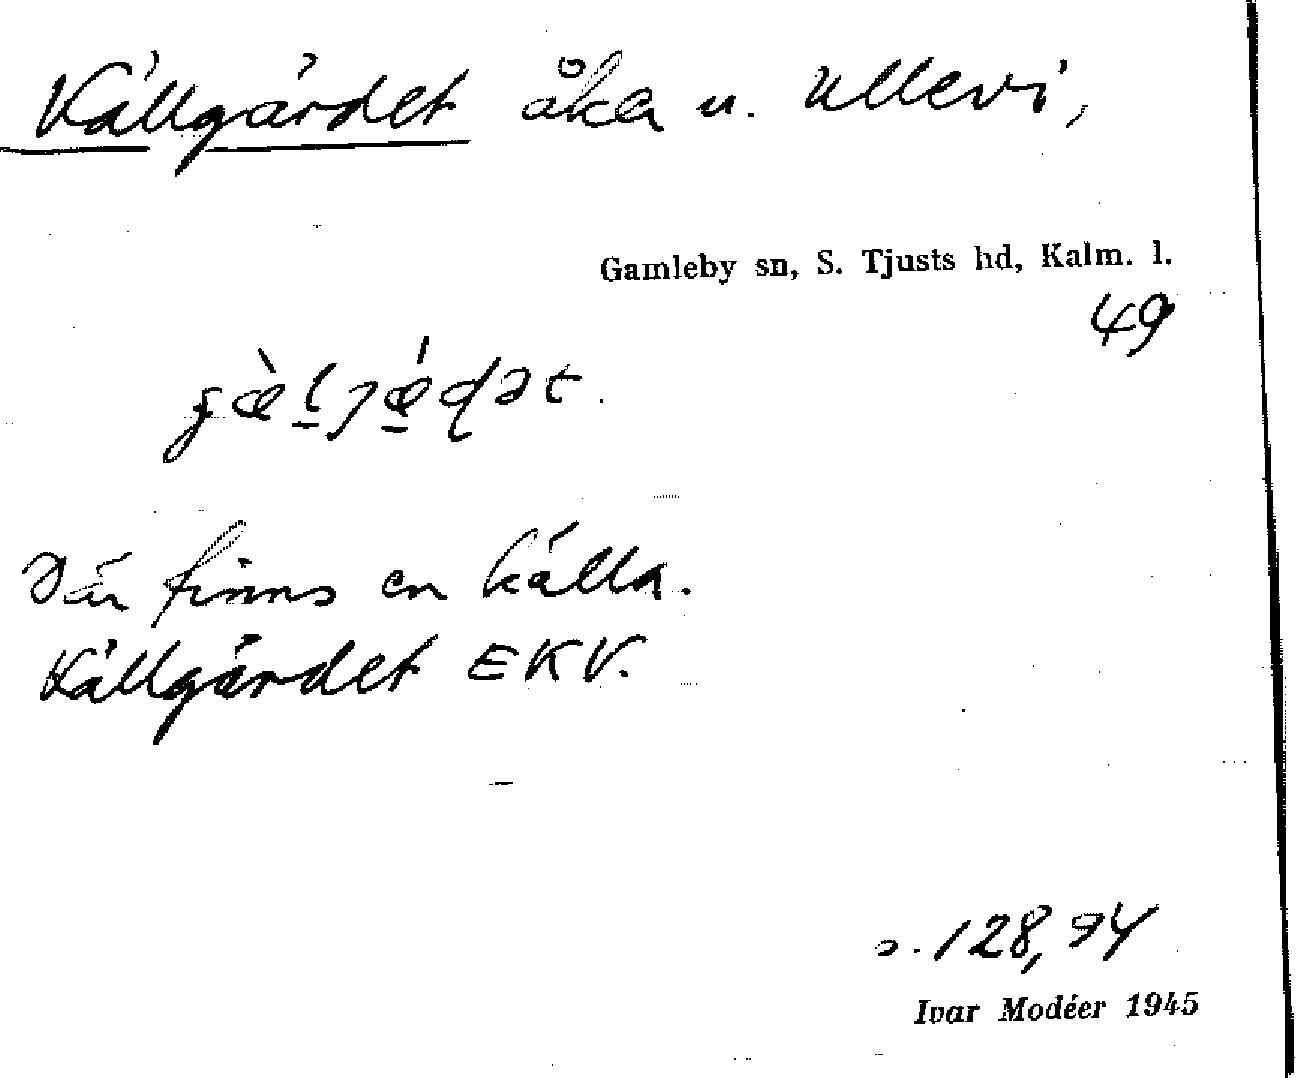 Källgärdet åker u. Ullevi,
Gamleby sn, S. Tjusts hd, Kalm. l.
49
Där finns en källa.
Källgärdet EKV.
s. 128, 94
Ivar Modéer 1945